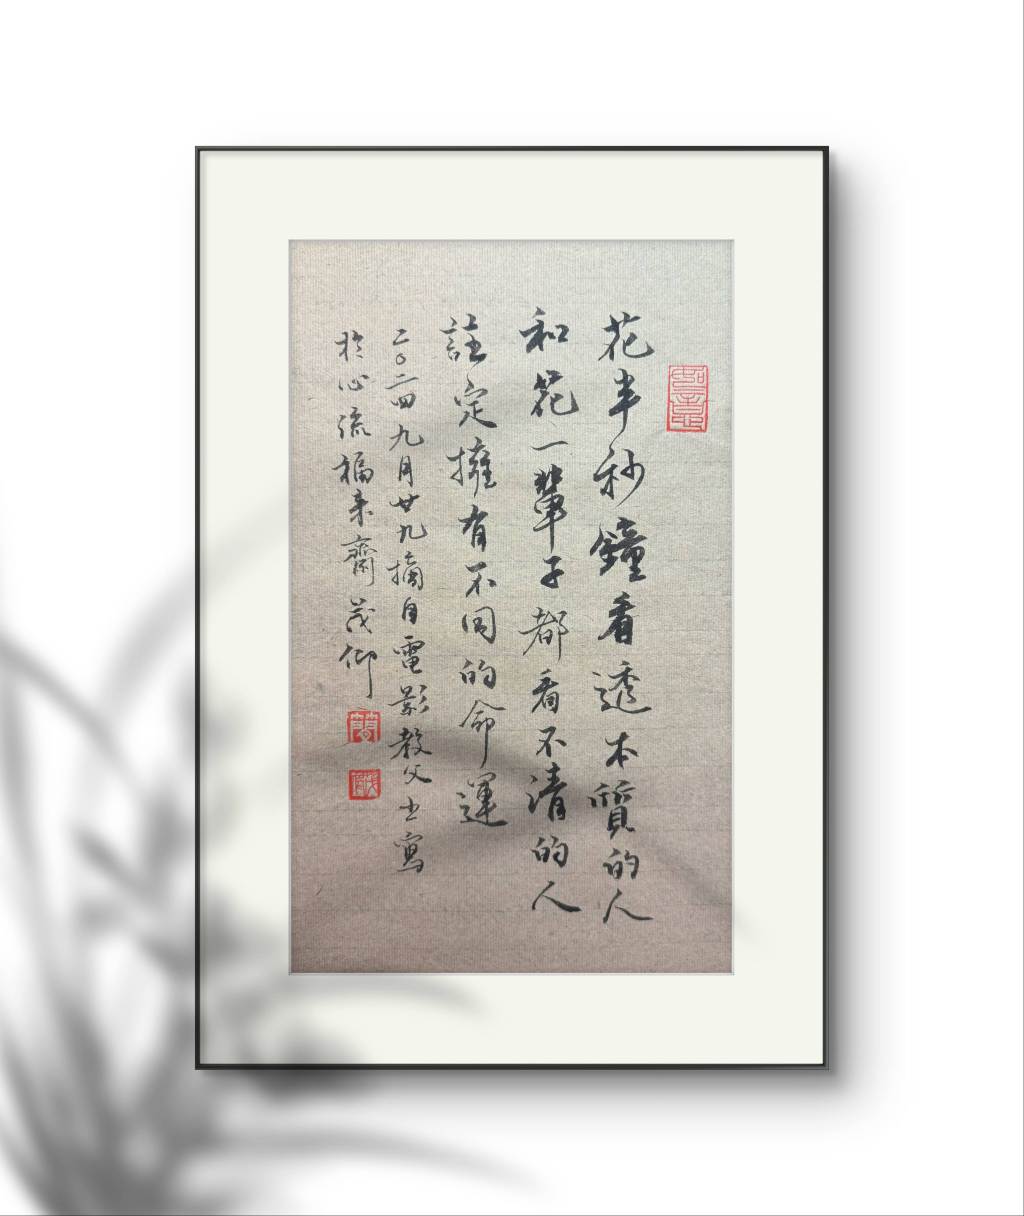 花半秒鐘看透本質的人
和花一輩子都看不清的人
註定擁有不同的命運
二〇二四九月廿九摘自電影教父上寫
於心流福来齋茂仰